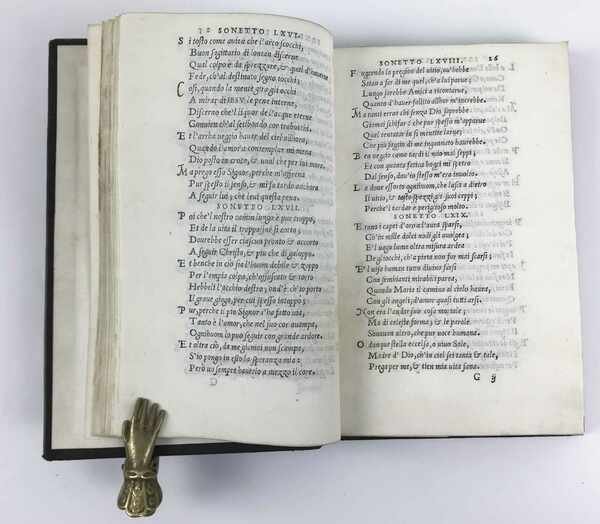 SONETTO LXVI.
Si tosto come avien che l'arco scocchi,
Buon sagittario di lontan discerne
Qual colpo è da sprezzare, & qual d'haverne
Fede, ch'al destinato segno tocchi:
Così, quando la mente giro gli occhi
A mirar di IESV le pene interne,
Discerno che'l liquor de l'acque eterne
che'l
Et l'arra veggio haver del ciel alhora,
Quando l'amor a contemplar mi mena
Dio posto in croce, & ual che per noi mora.
Ma prego esso Signor, perche m'affrena
Pur spesso il senso, & mi fa tardo anchora
A seguir lui; che levi questa pena.
SONETTO LXVII.
Poi che'l nostro camin lungo è pur troppo,
Et de la vita il troppo ne si conto;
Dourebbe esser ciascun pronto & accorto
A seguir Christo, & piu che di galoppo.
Et benche in ciò sia l'huom debile & zoppo
Per l'empio colpo, ch'offuscato & torto
Hebbeli l'occhio destro, ond'è si portò
Il grave giogo, per cui spesso intoppo;
Pur, perche il pio Signor s'ha fatto noi,
Tanto è l'amor, che nel suo cor questo,
Ognihuom lo puo seguir con grande ardore.
Et oltra ciò, da me giamai non scampa,
S'io pongo in esso la speranza mia:
Però uo sempre haverlo a mezzo il core.
SONETTO LXVIII. 26
Fuggendo la pregion del vitio, ov'hebbe
Satan a far di me quel, ch'al cune,
Lungo sarebbe Amici a ricontarue,
Quanto d'haver fallito alhor m'increbbe.
Ma tanti error chi senza Dio saprebbe
Giamai schifar? che pur spesso m'apparue
Qual tentator in sì mentite larve;
Che piu seggio di me ingannato haurebbe.
Ben veggio come tardi il mio mal seppi;
Et con quanta fatica hoggi mi spetro
Dal senso, dov'io stesso m'era involto.
La dove essorto ogniuom, che lasci a dietro
Il vitio, & tosto spezzi i suoi ceppi;
Perche'l tardar è periglioso molto.
SONETTO LXIX.
Erano i capei d'oro a l'aura sparsi,
Ch'in mille dolci nodi gli auolgea;
E'l vago lume oltra misura ardea
De gliocchi, ch'a pieta non fur mai scarsi;
E'l viso human tutto diuino farsi
Con sembianti mirabili parea,
Quando Maria il camino al cielo havea
Con gli angeli; d'amor quasi tutti arsi.
Non era l'andar suo cosa mortale;
Ma di celeste forma; & le parole
Sonavan altro, che pur voce humana.
O donque stella eccelsa, o vivo Sole,
Madre d'Dio, ch'in ciel sei tanta & tale,
Prega per me, & tien mia vita sana.
G ij